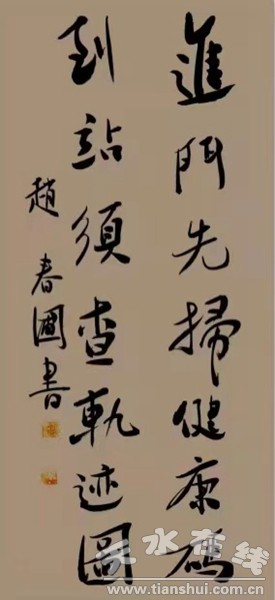 進門先掃健康碼
到站須查軌迹圖
趙春圃書
天水在线
www.tianshui.com.cn